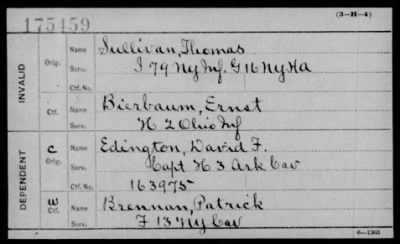 175459
(3-H-4)
INVALID
Orig.
Name Sullivan, Thomas
Serv. I 79 Ny Inf. G 16 Ny HA
Ctf. No.
Ctf.
Name Bierbaum, Ernst
Serv. H 2 Ohio Inf
DEPENDENT
C
Orig.
Name Edington, David F.
Serv. Capt H 3 Ark Cav
Ctf. No. 163975
W
Ctf.
Name Brennan, Patrick
Serv. F 13 Ny Cav